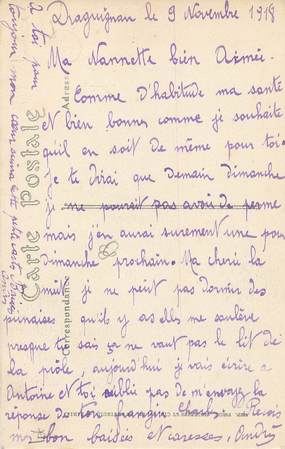 Draguignan le 9 Novembre 1918
Ma Nannette bien Aimée.
Comme d'habitude ma santé
et bien bonne comme je souhaite
qu'il en soit de même pour toi.
je te dirai que Demain dimanche
ne pourait pas avoir de perme
mais j'en aurai surement une pour
Dimanche prochain. Ma cherie la
nuit je ne peut pas dormir des
punaises qu'il y as elles me soulève
presque tu sais ça ne vaut pas le lit de
la piôle, aujourd'hui je vais écrire a
Antoine et toi oublie pas de m'envoyez la
réponse de ton frangin Charle Reçois
mes bon baisées et caresses, André
A toi pour
toujour mon
Carte postale
Adresse
Correspondance